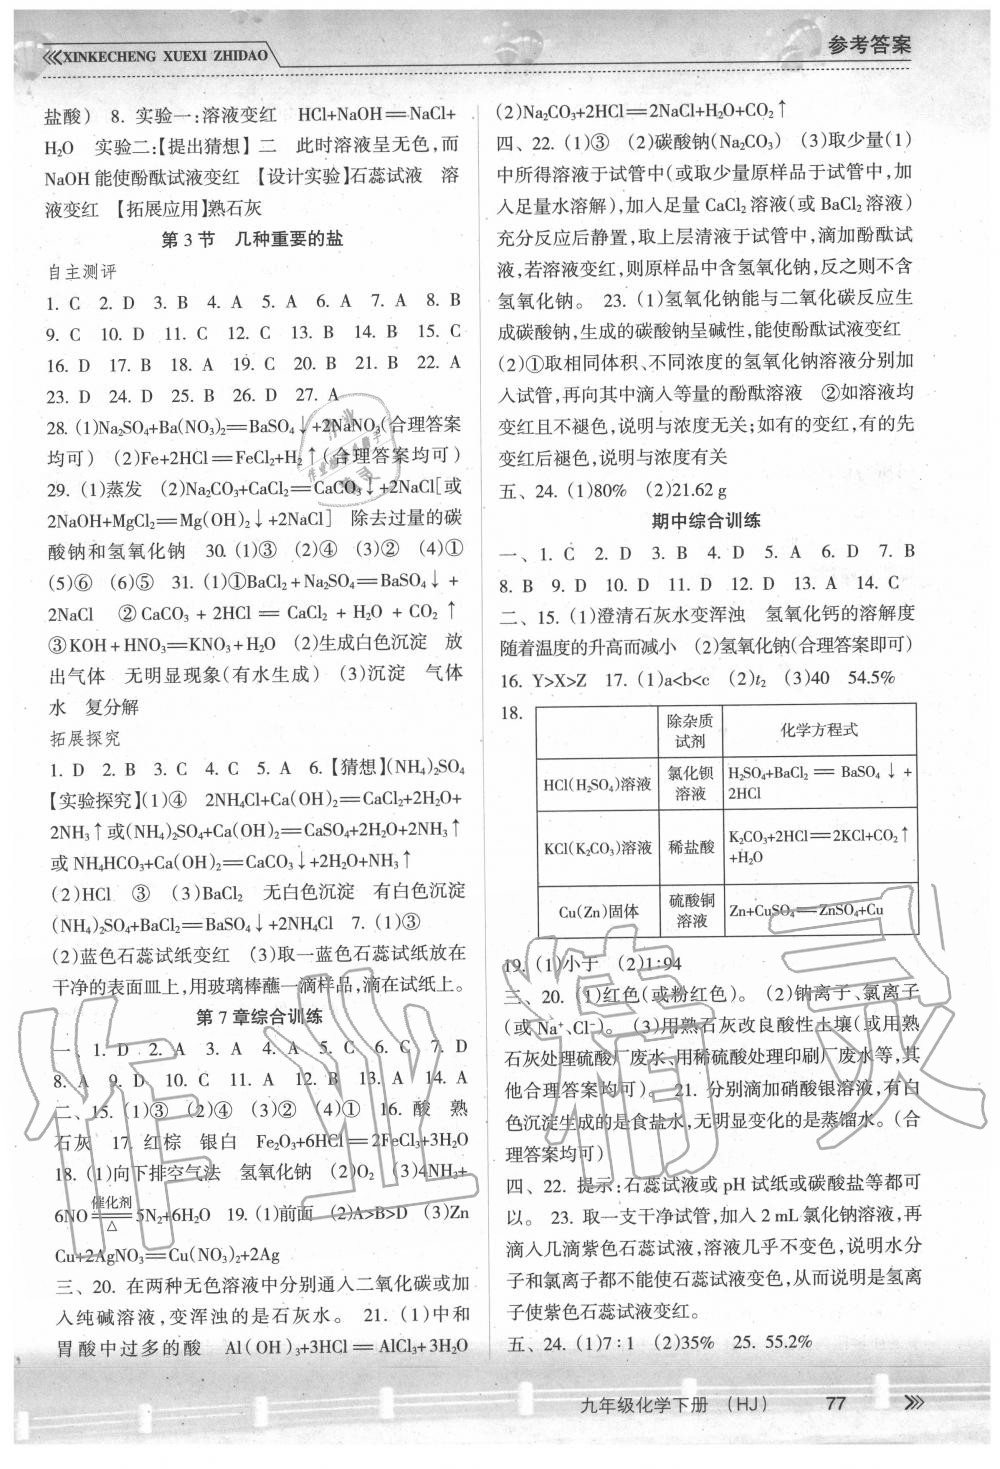 XINKECHENG XUEXI ZHIDAO
参考答案
盐酸) 8. 实验一:溶液变红 HCl+NaOH＝NaCl+
H₂O 实验二:【提出猜想】二 此时溶液呈无色,而
NaOH能使酚酞试液变红 【设计实验】石蕊试液 溶
液变红 【拓展应用】熟石灰
第3节 几种重要的盐
自主测评
1. C 2. D 3. B 4. A 5. A 6. A 7. A 8. B
9. C 10. D 11. C 12. C 13. B 14. B 15. C
16. D 17. B 18. A 19. C 20. B 21. B 22. A
23. D 24. D 25. B 26. D 27. A
28. (1)Na₂SO₄+Ba(NO₃)₂＝BaSO₄↓+2NaNO₃(合理答案
均可) (2)Fe+2HCl＝FeCl₂+H₂↑(合理答案均可)
29. (1)蒸发 (2)Na₂CO₃+CaCl₂＝CaCO₃↓+2NaCl[或
2NaOH+MgCl₂＝Mg(OH)₂↓+2NaCl] 除去过量的碳
酸钠和氢氧化钠 30. (1)③ (2)④ (3)② (4)①
(5)⑥ (6)⑤ 31. (1)①BaCl₂+Na₂SO₄＝BaSO₄↓+
2NaCl ②CaCO₃+2HCl＝CaCl₂+H₂O+CO₂↑
③KOH+HNO₃＝KNO₃+H₂O (2)生成白色沉淀 放
出气体 无明显现象(有水生成) (3)沉淀 气体
水 复分解
拓展探究
1. D 2. B 3. C 4. C 5. A 6.【猜想】(NH₄)₂SO₄
【实验探究】(1)④ 2NH₄Cl+Ca(OH)₂＝CaCl₂+2H₂O+
2NH₃↑或(NH₄)₂SO₄+Ca(OH)₂＝CaSO₄+2H₂O+2NH₃↑
或NH₄HCO₃+Ca(OH)₂＝CaCO₃↓+2H₂O+NH₃↑
(2)HCl ③ (3)BaCl₂ 无白色沉淀 有白色沉淀
(NH₄)₂SO₄+BaCl₂＝BaSO₄↓+2NH₄Cl 7. (1)③
(2)蓝色石蕊试纸变红 (3)取一蓝色石蕊试纸放在
干净的表面皿上,用玻璃棒蘸一滴样品,滴在试纸上。
第7章综合训练
一、1. D 2. A 3. A 4. A 5. C 6. C 7. D
8. A 9. D 10. C 11. A 12. B 13. A 14. A
二、15. (1)③ (2)④ (3)② (4)① 16. 酸 熟
石灰 17. 红棕 银白 Fe₂O₃+6HCl＝2FeCl₃+3H₂O
18. (1)向下排空气法 氢氧化钠 (2)O₂ (3)4NH₃+
6NO 催化剂＝△ 5N₂+6H₂O 19. (1)前面 (2)A>B>D (3)Zn
Cu+2AgNO₃＝Cu(NO₃)₂+2Ag
三、20. 在两种无色溶液中分别通入二氧化碳或加
入纯碱溶液,变浑浊的是石灰水。 21. (1)中和
胃酸中过多的酸 Al(OH)₃+3HCl＝AlCl₃+3H₂O
(2)Na₂CO₃+2HCl＝2NaCl+H₂O+CO₂↑
四、22. (1)③ (2)碳酸钠(Na₂CO₃) (3)取少量(1)
中所得溶液于试管中(或取少量原样品于试管中,加
入足量水溶解),加入足量CaCl₂溶液(或BaCl₂溶液)
充分反应后静置,取上层清液于试管中,滴加酚酞试
液,若溶液变红,则原样品中含氢氧化钠,反之则不含
氢氧化钠。 23. (1)氢氧化钠能与二氧化碳反应生
成碳酸钠,生成的碳酸钠呈碱性,能使酚酞试液变红
(2)①取相同体积、不同浓度的氢氧化钠溶液分别加
入试管,再向其中滴入等量的酚酞溶液 ②如溶液均
变红且不褪色,说明与浓度无关;如有的变红,有的先
变红后褪色,说明与浓度有关
五、24. (1)80% (2)21.62 g
期中综合训练
一、1. C 2. D 3. B 4. D 5. A 6. D 7. B
8. B 9. D 10. D 11. D 12. D 13. A 14. C
二、15. (1)澄清石灰水变浑浊 氢氧化钙的溶解度
随着温度的升高而减小 (2)氢氧化钠(合理答案即可)
16. Y>X>Z 17. (1)a<b<c (2)t₂ (3)40 54.5%
18.
除杂质
试剂
化学方程式
HCl(H₂SO₄)溶液
氯化钡
溶液
H₂SO₄+BaCl₂＝BaSO₄↓+
2HCl
KCl(K₂CO₃)溶液
稀盐酸
K₂CO₃+2HCl＝2KCl+CO₂↑
+H₂O
Cu(Zn)固体
硫酸铜
溶液
Zn+CuSO₄＝ZnSO₄+Cu
19. (1)小于 (2)1:94
三、20. (1)红色(或粉红色)。 (2)钠离子、氯离子
(或Na⁺、Cl⁻)。 (3)用熟石灰改良酸性土壤(或用熟
石灰处理硫酸厂废水、用稀硫酸处理印刷厂废水等,其
他合理答案均可) 21. 分别滴加硝酸银溶液,有白
色沉淀生成的是食盐水,无明显变化的是蒸馏水。(合
理答案均可)
四、22. 提示:石蕊试液或pH试纸或碳酸盐等都可
以。 23. 取一支干净试管,加入2 mL氯化钠溶液,再
滴入几滴紫色石蕊试液,溶液几乎不变色,说明水分
子和氯离子都不能使石蕊试液变色,从而说明是氢离
子使紫色石蕊试液变红。
五、24. (1)7:1 (2)35% 25. 55.2%
九年级化学下册 (HJ) 77
作业精灵